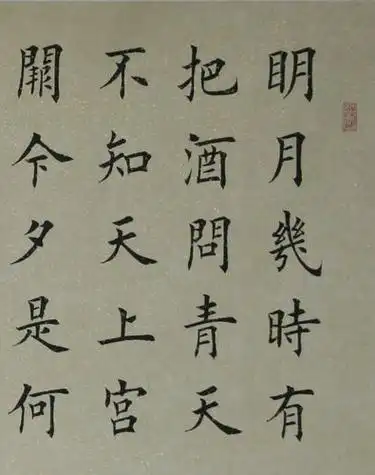 明月幾時有
把酒問青天
不知天上宮
闕今夕是何